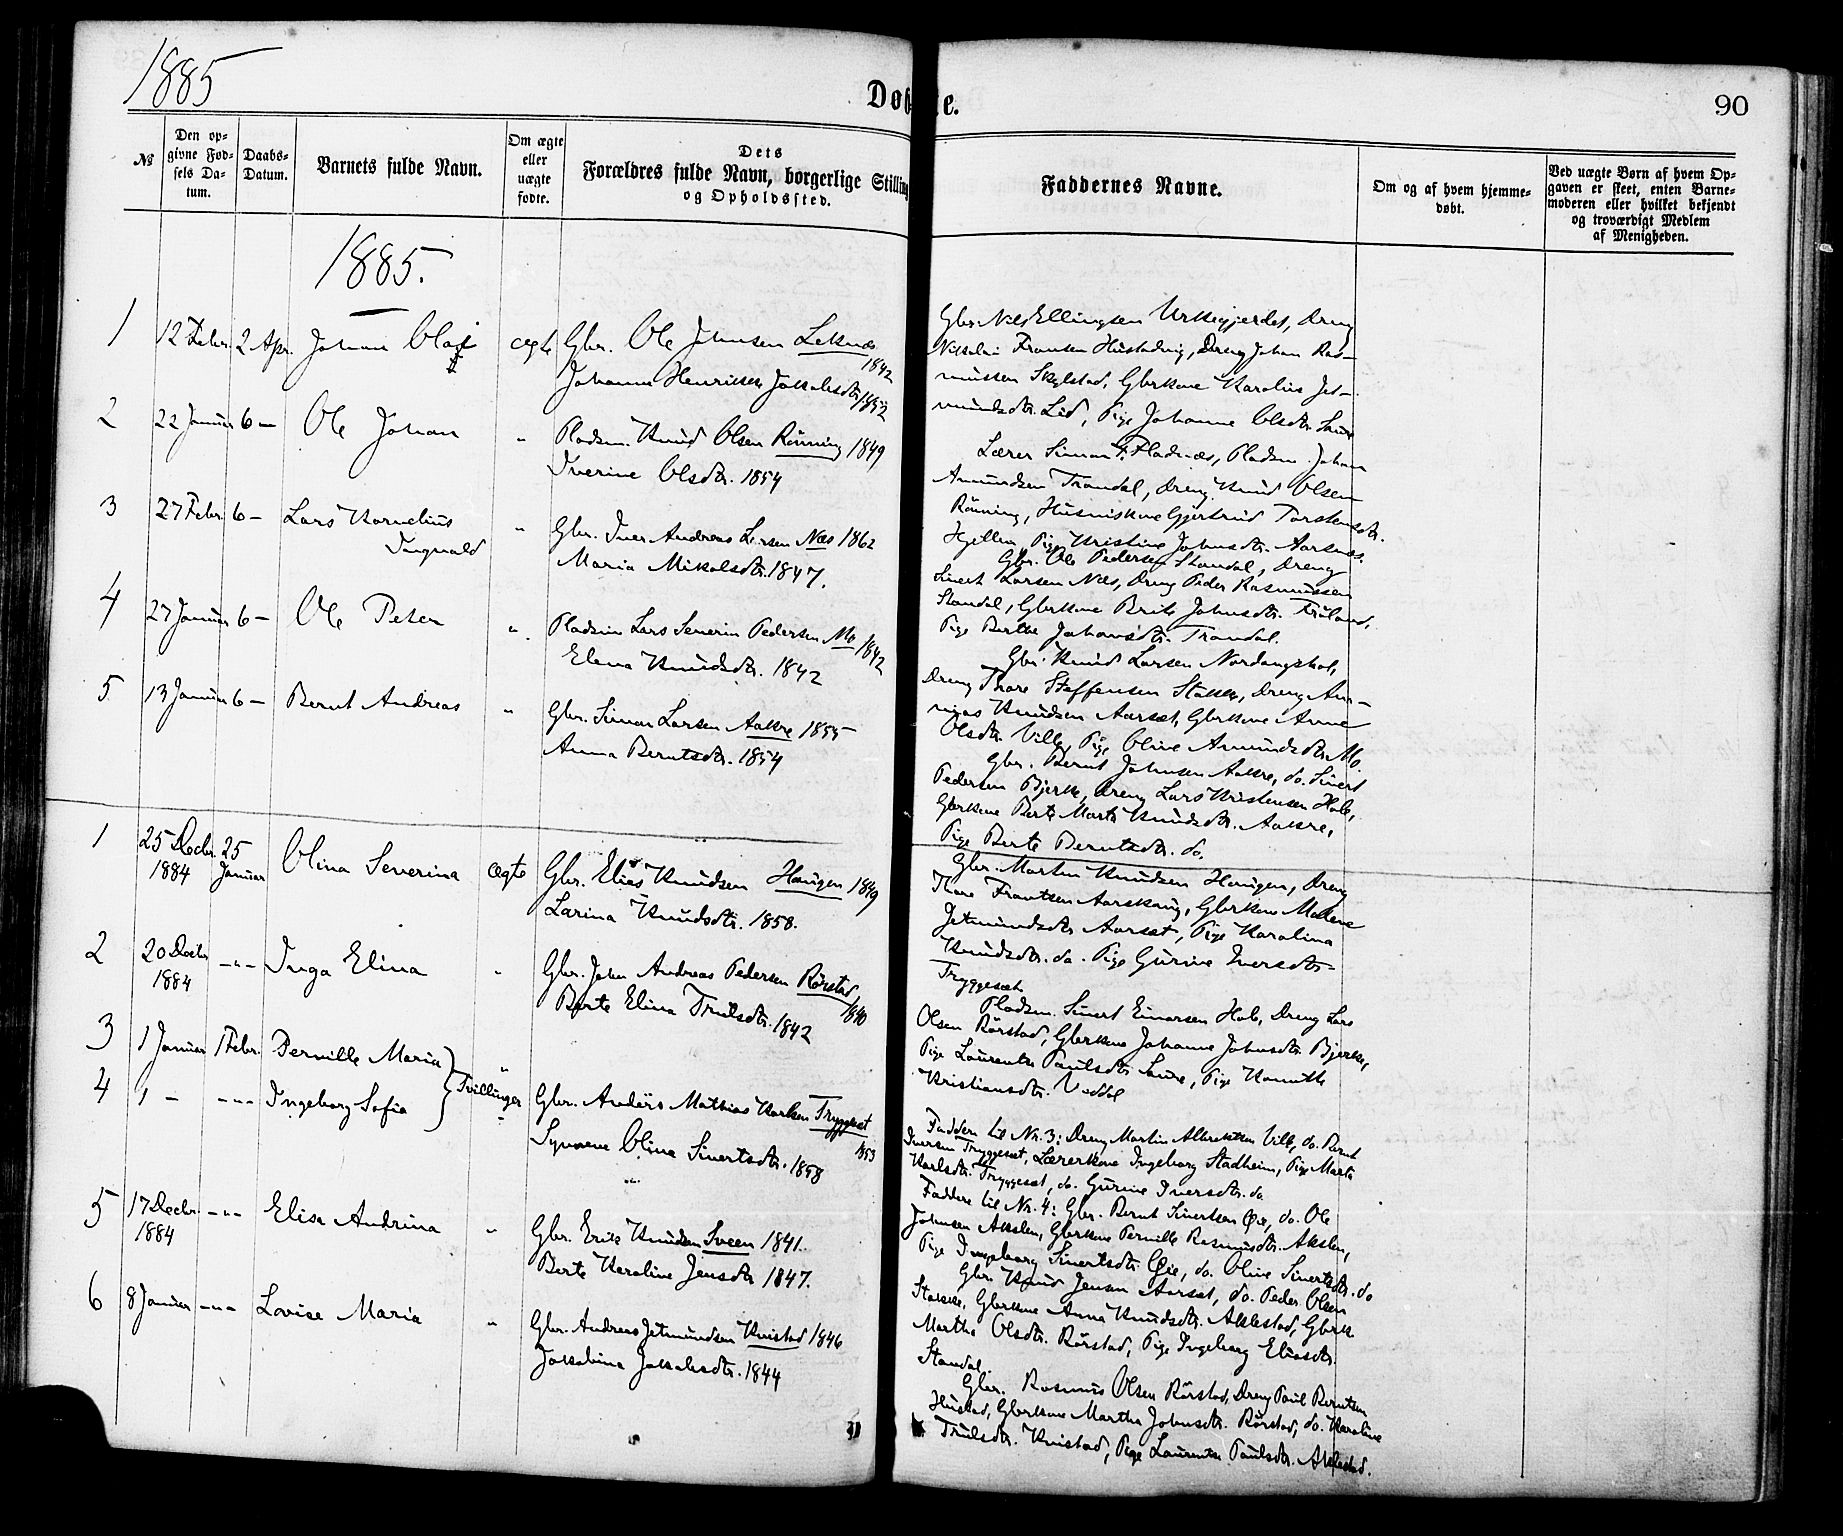 1885
Døbte.
90
№
Den op-
givne Fød-
sels Da-
tum.
Daabs-
Datum.
Barnets fulde Navn.
Om ægte
eller
uægte
fødte.
Dets
Forældres fulde Navn, borgerlige Stilling
og Opholdssted.
Faddernes Navne.
Om og af hvem hjemme-
døbt.
Ved uægte Børn af hvem Op-
gaven er skeet, enten Barne-
moderen eller hvilket bekjendt
og troværdigt Medlem
af Menigheden.
1885.
1 12 Febr. 2 Apr. Johan ægte Gbr. Ole Johnsen Leknes 1842
Johanne Henrikke Jakobsdtr. 1852
Gbr. Nils Ellingsen Urkegjerdet, Dreng
Nikolai Fransen Hustadvig, Dreng Johan Ras-
mussen Skylstad, Gbrkone Karolus Jet-
mundsdtr. Lid, Pige Johanne Olsdtr. Saure
2 22 Januar 6 — Ole Johan " Pladsm. Knud Olsen Rönning 1849
Iverine Olsdtr. 1854
Lærer Simon F. Fladnæs, Pladsm. Johan
Amundsen Trandal, Dreng Knud Olsen
Rönning, Husmskone Gjertrud Torstensdtr.
Hjellen, Pige Kristine Johnsdtr. Aarsnes.
3 27 Febr. 6 — Lars Kornelius
Ingvald " Gbr. Iver Andreas Larsen Næs 1862
Maria Mikalsdtr. 1847.
Gbr. Ole Pedersen Standal, Dreng
Sivert Larsen Næs, Dreng Peder Rasmussen
Standal, Gbrkone Brite Johnsdtr. Tröland,
Pige Berthe Johansdtr. Trandal.
4 27 Januar 6 — Ole Peter " Pladsm. Lars Severin Pedersen Mo 1842
Elena Knudsdtr. 1842
Gbr. Knud Larsen Nordangshol,
Dreng Thore Steffensen Stakke, Dreng An-
nias Knudsen Aarset, Gbrkone Anne
Olsdtr. Ville, Pige Olive Amundsdtr. Mo.
5 13 Januar 6 — Bernt Andreas " Gbr. Simon Larsen Aakre 1855
Anna Berntsdtr. 1854
Gbr. Bernt Johnsen Aakre, do. Sivert
Pedersen Bjerke, Dreng Lars Kristensen Hole,
Gbrkone Berte Marte Knudsdtr. Aakre,
Pige Berte Berntsdtr. do.
1 25 Decbr. 1884 25 Januar Olina Severina ægte Gbr. Elias Knudsen Haugen 1849
Larina Knudsdtr. 1858.
Gbr. Martin Knudsen Haugen, Dreng
Thore Frantsen Aarskaug, Gbrkone Malene
Jetmundsdtr. Aarset, Pige Karolina
Knudsdtr. do. Pige Gurine Iversdtr.
Tryggeset
2 20 Decbr. 1884 — " — Inga Elina " Gbr. John Andreas Pedersen Rörstad 1840
Berte Elina Trulsdtr. 1842
Pladsm. Sivert Einarsen Hole, Dreng Lars
Olsen Rörstad, Gbrkone Johanne Johnsdtr. Bjerke,
Pige Laurentse Paulsdtr. Saure, Pige
Kristiansdtr. Veddal
3 1 Januar 1 Febr. Pernille Maria } Tvillinger "
4 1 — — " — Ingeborg Sofia " Gbr. Anders Mathias Karlsen Tryggeset 1853
Synneve Olina Sivertsdtr. 1858
Faddere til Nr. 3: Dreng Martin Albrektsen Ville, do. Bernt
Iversen Tryggeset, Lærerkone Ingeborg Stadheim, Pige Marte
Karlsdtr. Tryggeset, do. Gurine Iversdtr. do
Faddere til Nr. 4: Gbr. Bernt Sivertsen Öie, do. Ole
Johnsen Akslen, Gbrkone Pernille Rasmusdtr. Akslen,
Pige Ingeborg Sivertsdtr. Öie, do. Oline Sivertsdtr. do
5 17 Decbr. 1884 — " — Elise Andrina " Gbr. Erik Knudsen Sveen 1841.
Berte Karoline Jensdtr. 1847.
Gbr. Knud Jensen Aarset, do. Peder Olsen
Stakke, Gbrkone Anna Knudsdtr. Aklestad, Gbrk.
Marthe Olsdtr. Rörstad, Pige Ingeborg Eliasdtr.
Standal.
6 8 Januar — " — Lovise Maria " Gbr. Andreas Jetmundsen Kvistad 1846
Jakobina Jakobsdtr. 1844
Gbr. Rasmus Olsen Rörstad, Dreng Paul Berntsen
Hustad, Gbrkone Marthe Johnsdtr. Rörstad, do. Karoline
Trulsdtr. Kvistad, Pige Laurentse Paulsdtr. Aklestad.